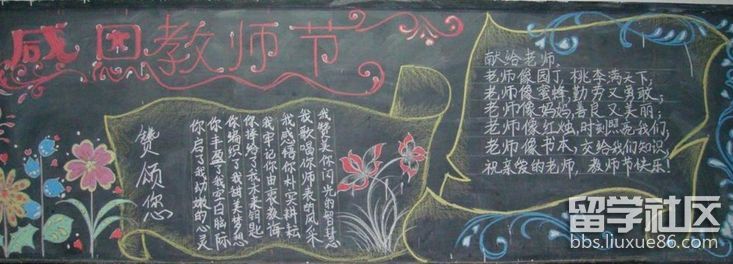 感恩教师节
赞颂您
我赞美你闪光的智慧
我歌唱你师表的风采
我感悟你朴实耕耘
我牢记你由衷教诲
你捧给了我未来钥匙
你编织了我甜美梦想
你丰盈了我空白脑际
你启了我幼嫩的心灵
献给老师:
老师像园丁,桃李满天下;
老师像蜜蜂,勤劳又勇敢;
老师像妈妈,善良又美丽;
老师像红烛,时刻照亮我们;
老师像书本,交给我们知识,
祝亲爱的老师,教师节快乐!
留学社区
bbs.liuxue86.com